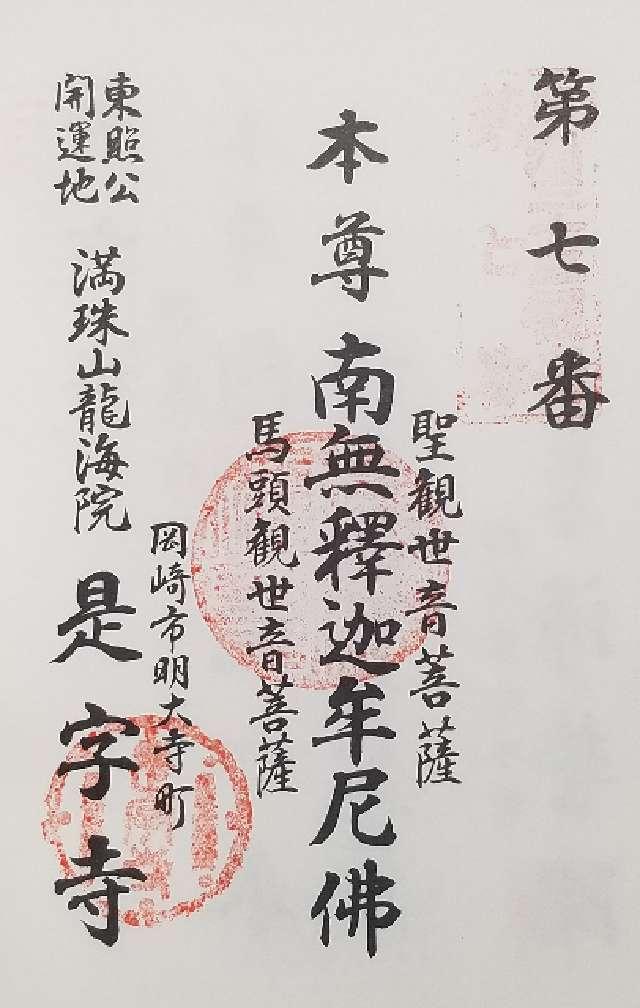 第七番
聖観世音菩薩
本尊南無釋迦牟尼佛
馬頭観世音菩薩
岡崎市明大寺町
東照公
開運地
満珠山龍海院
是字寺